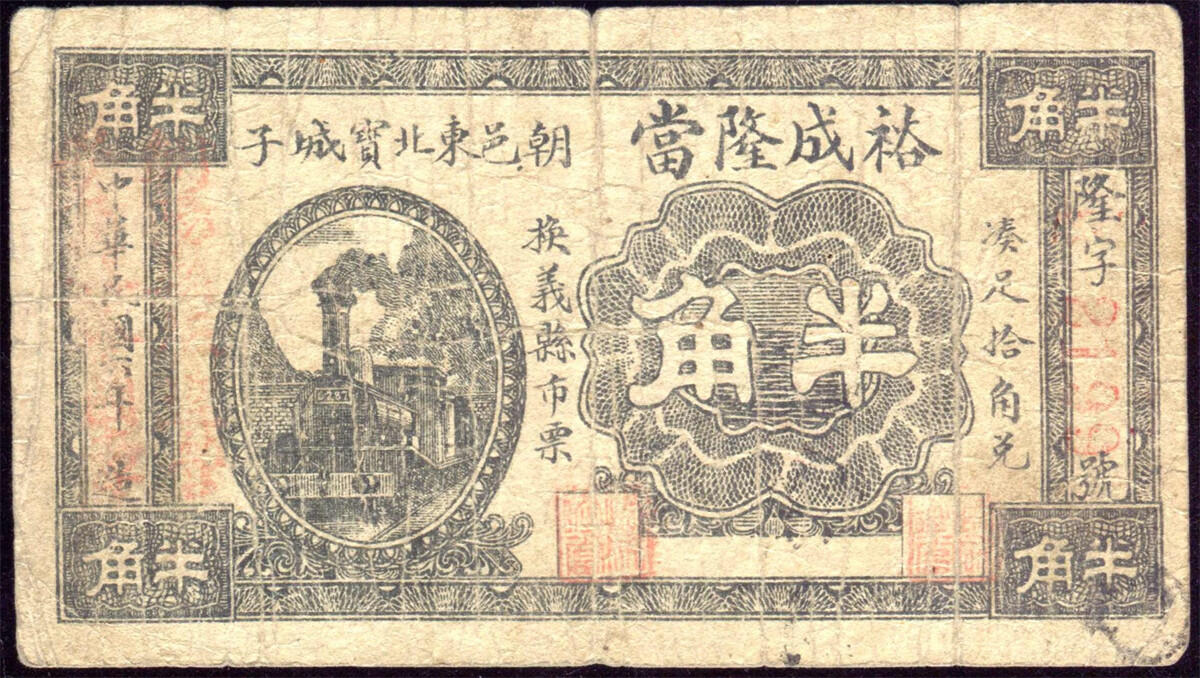 半角
裕成隆當
朝邑東北寶城子
半角
隆字
號
凑足拾角兌
半角
換義縣市票
中華民國六年造
半角
半角